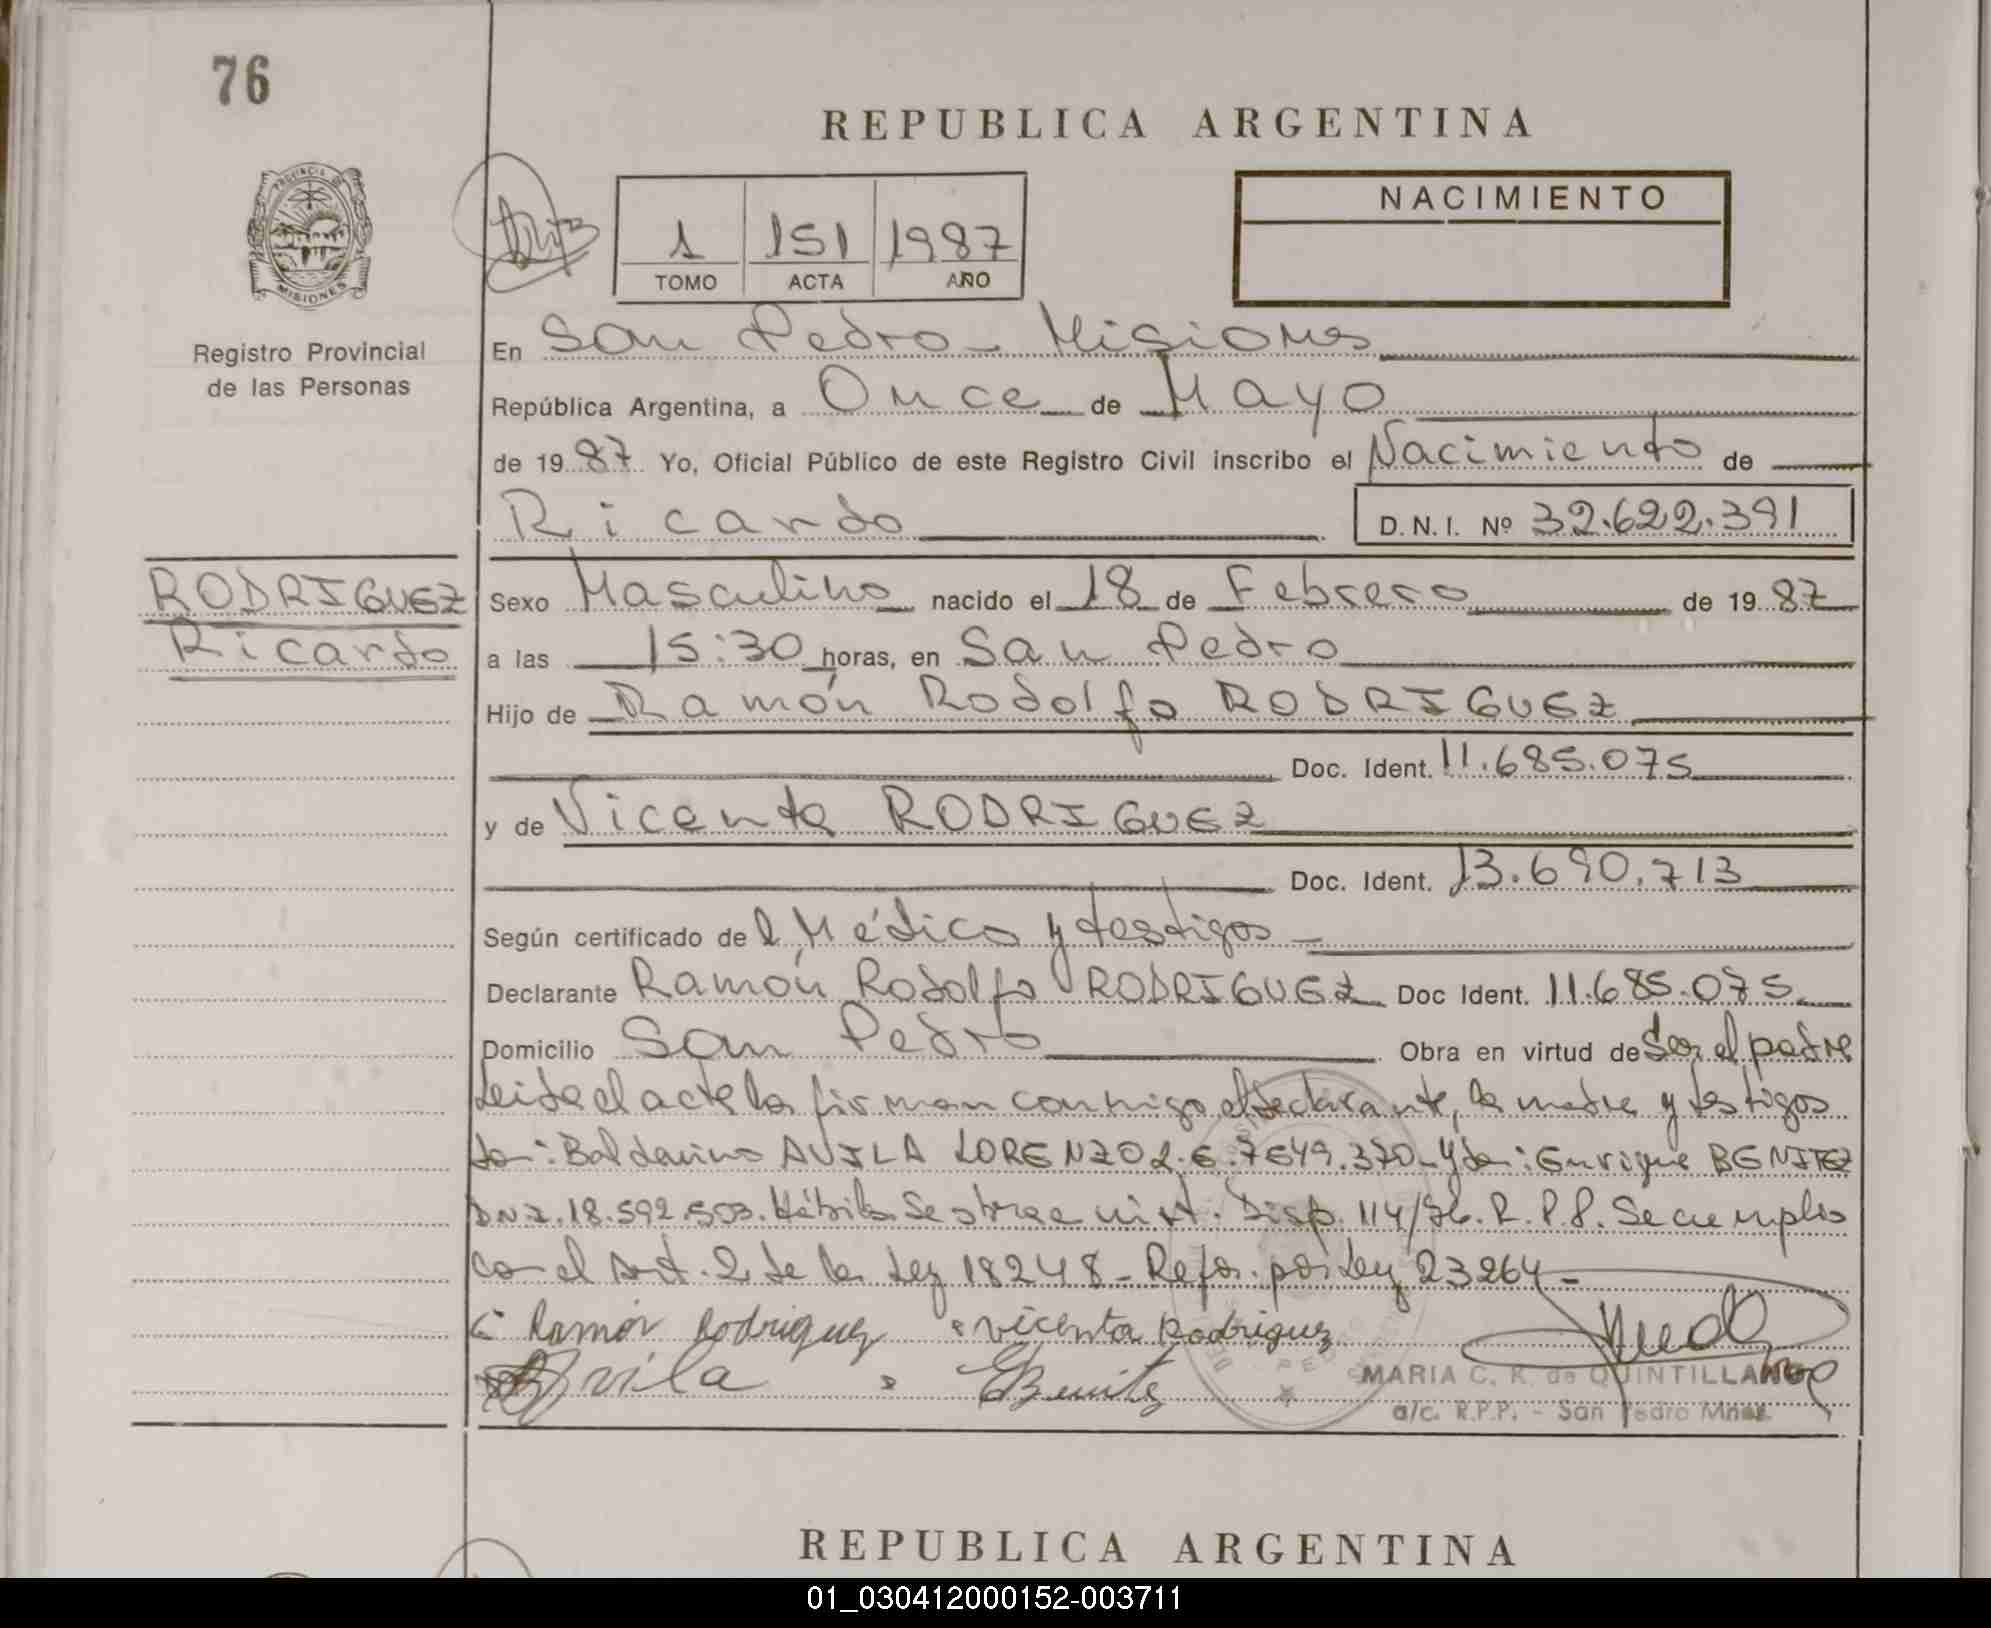 76
REPUBLICA ARGENTINA
PROVINCIA DE
MISIONES
Registro Provincial
de las Personas
1 151 1987
TOMO ACTA AÑO
NACIMIENTO
En San Pedro - Misiones
República Argentina, a Once de Mayo
de 1987 Yo, Oficial Público de este Registro Civil inscribo el Nacimiento de
Ricardo D.N.I. Nº 32.622.391
RODRIGUEZ
Ricardo
Sexo Masculino nacido el 18 de Febrero de 1987
a las 15:30 horas, en San Pedro
Hijo de Ramón Rodolfo RODRIGUEZ
Doc. Ident. 11.685.075
y de Vicenta RODRIGUEZ
Doc. Ident. 13.690.713
Según certificado del Médico y testigos
Declarante Ramón Rodolfo RODRIGUEZ Doc Ident. 11.685.075
Domicilio San Pedro Obra en virtud de Ser el padre
Leida el acta la firman conmigo el declarante, la madre y testigos
Don: Baldovino AVILA LORENZO L.E. 7649.370 - y don: Enrique BENITEZ
DNI. 18.592.503. Disp. 114/76. R.P.P. Se cumplio
con el Art. 2 de la Ley 18248 - Refor. por Ley 23264 -
Ramón Rodriguez vicenta Rodriguez
Avila EBenitez
MARIA C. R. de QUINTILLAN
a/c. R.P.P. - San Pedro Mnes.
REPUBLICA ARGENTINA
01_030412000152-003711